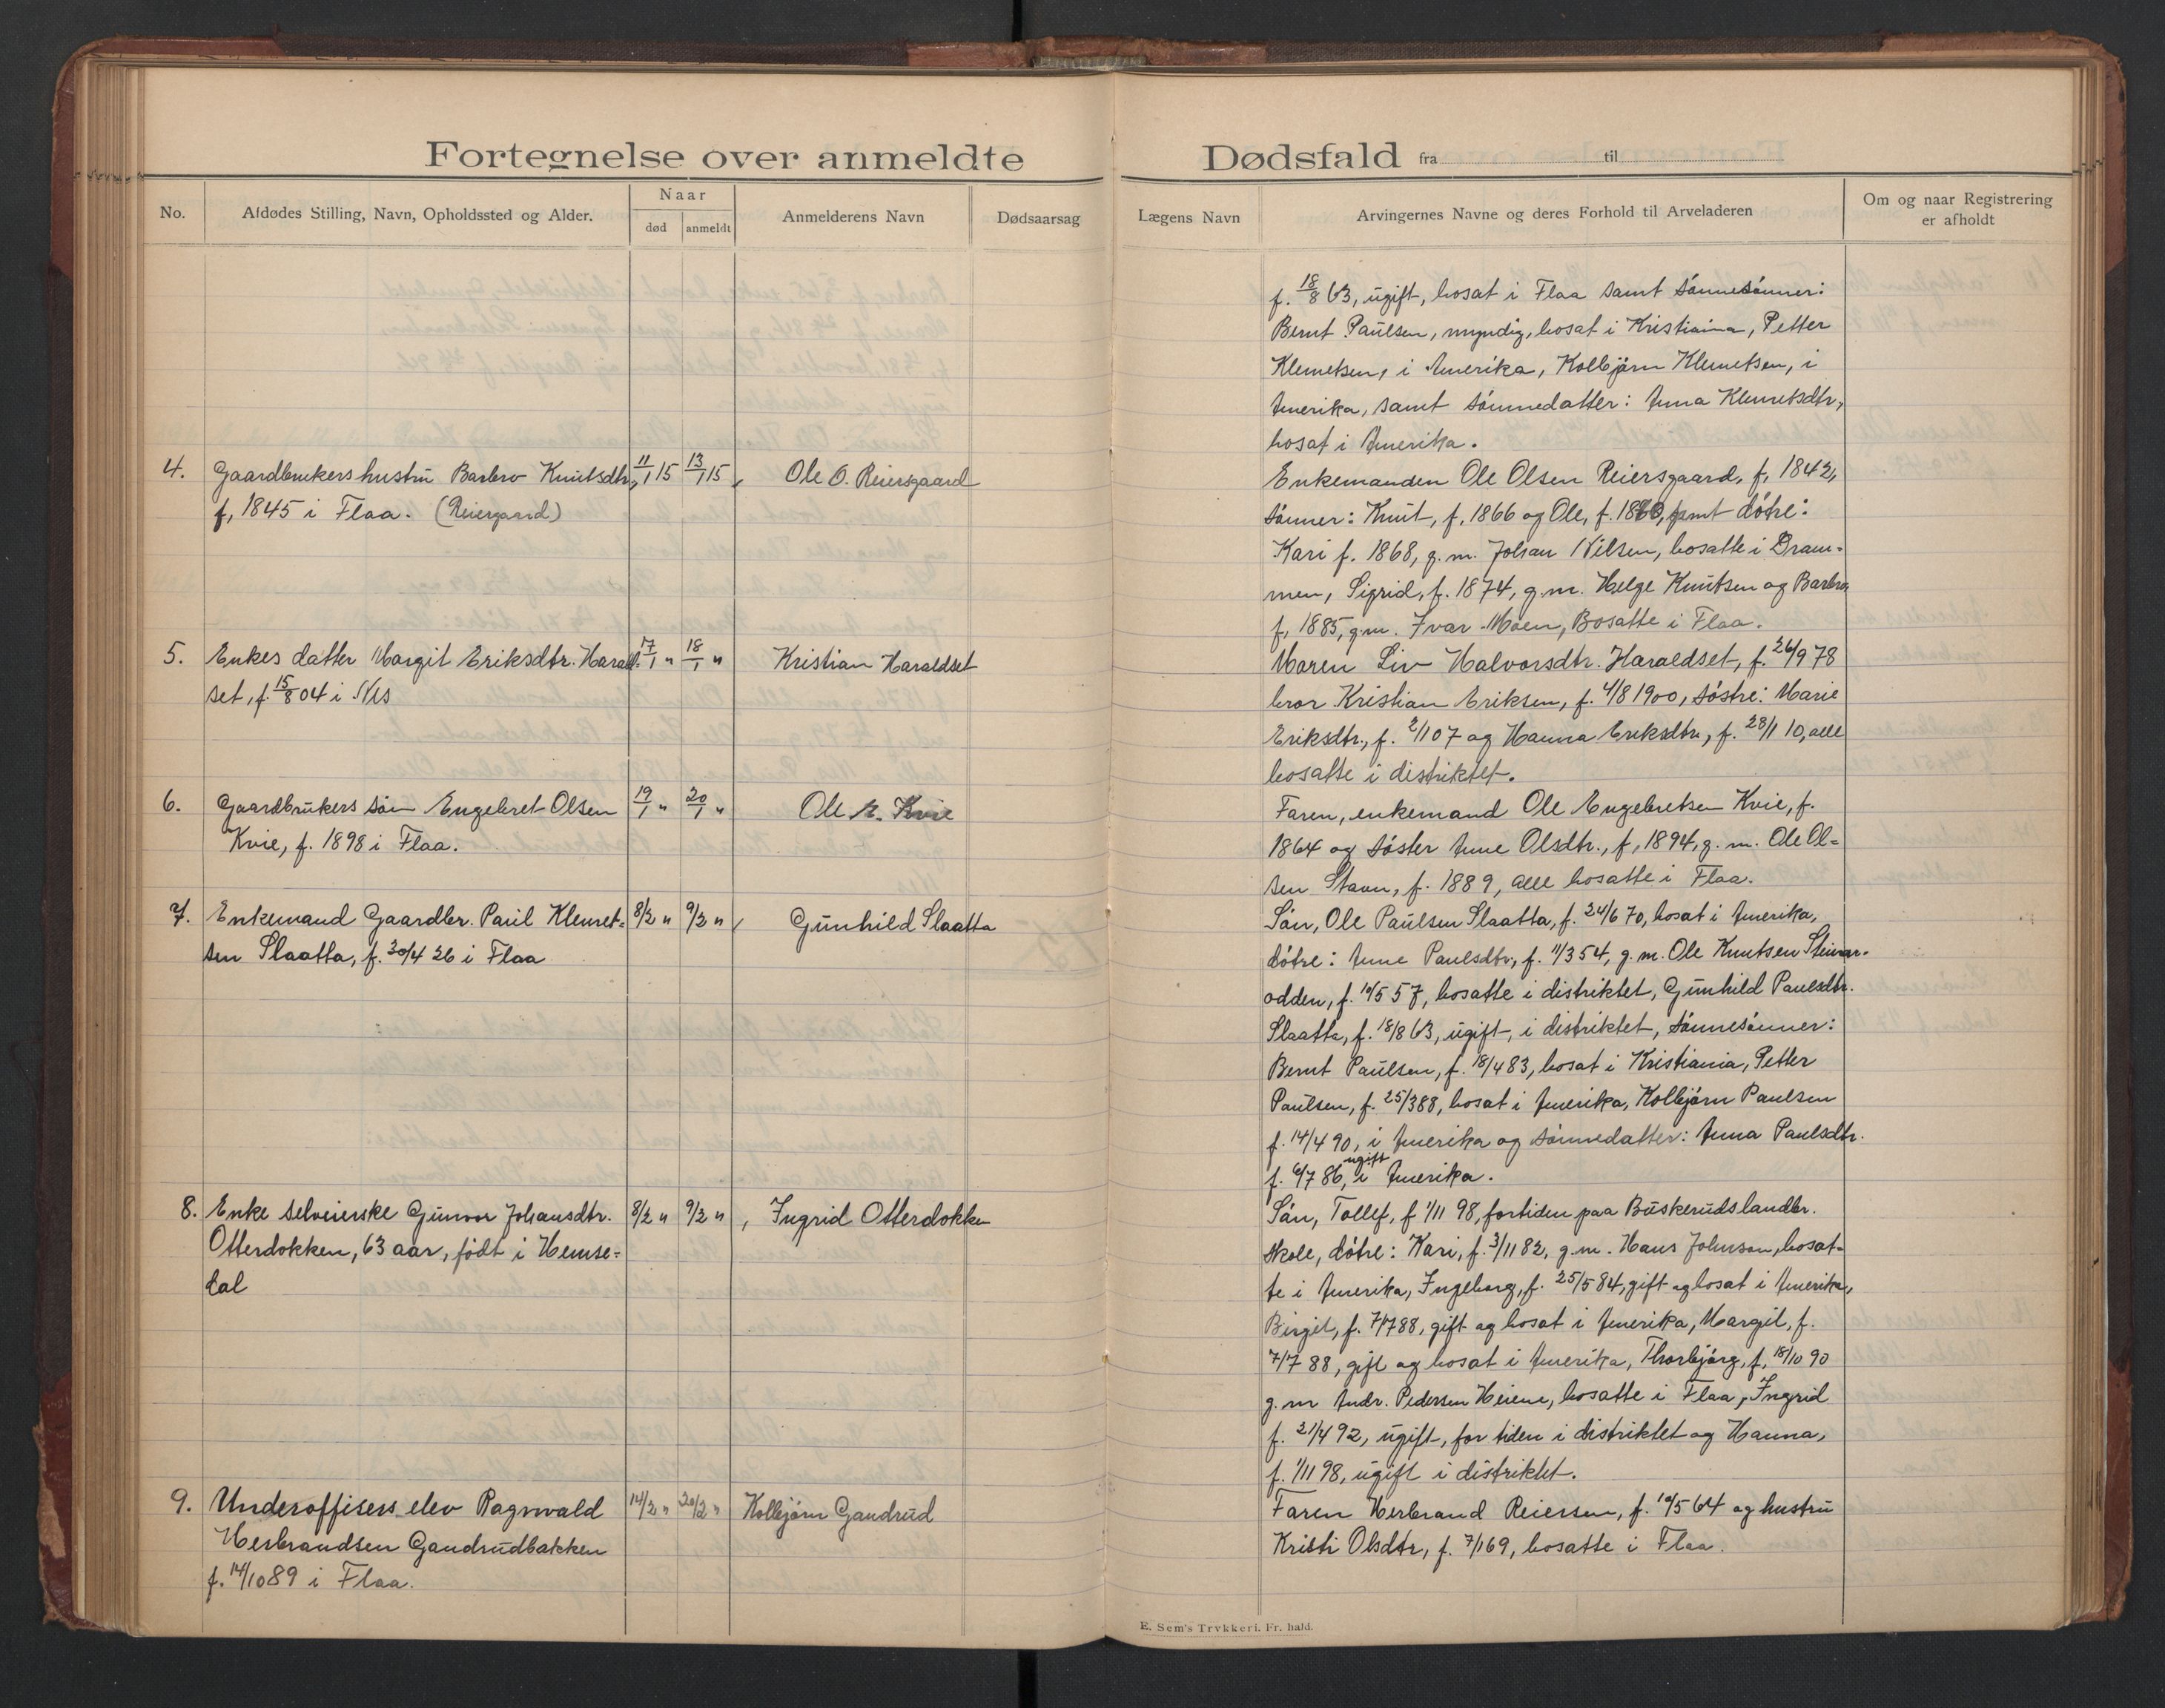 Fortegnelse over anmeldte
No.
Afdødes Stilling, Navn, Opholdssted og Alder.
Naar
død
anmeldt
Anmelderens Navn
Dødsaarsag
4. Gaardbrukers hustru Barbro Knutsdtr, 11/1 15 13/1 15, Ole O. Reiersgaard
f, 1845 i Flaa. (Reiergaard)
5. Enkes datter Margit Eriksdtr. Harald- 17/1 " 18/1 " Kristian Haraldset
set, f. 15/8 04 i Nes
6. Gaardbrukers søn Engebret Olsen 19/1 " 20/1 " Ole E. Kvie
Kvie, f. 1898 i Flaa.
7. Enkemand Gaardbr. Paul Klemet= 8/2 " 9/2 " , Gunhild Slaatta
sen Slaatta, f. 20/4 26 i Flaa
8. Enke selveierske Gunvor Johansdtr. 8/2 " 9/2 " , Ingrid Otterdokken
Otterdokken, 63 aar, født i Hemse=
dal
9. Underoffisers elev Ragnvald 14/2 " 20/2 " Kolbjørn Gandrud
Herbrandsen Gandrudbakken
f. 14/10 89 i Flaa.
Dødsfald fra til
Lægens Navn
Arvingernes Navne og deres Forhold til Arveladeren
Om og naar Registrering
er afholdt
f. 18/8 63, ugift, bosat i Flaa samt sønnesønner:
Bernt Paulsen, myndig, bosat i Kristiania, Petter
Klemetsen, i Amerika, Kolbjørn Klemetsen, i
Amerika, samt sønnedatter: Anna Klemetsdtr,
bosat i Amerika.
Enkemanden Ole Olsen Reiersgaard, f, 1842,
sønner: Knut, f. 1866 og Ole, f. samt døtre:
Kari f. 1868, g.m. Johan Nilsen, bosatte i Dram-
men, Sigrid, f. 1874, g.m. Helge Knutsen og Barbro,
f, 1885, g.m. Ivar Moen, Bosatte i Flaa.
Moren Liv Halvorsdtr. Haraldset, f. 26/9 78
bror Kristian Eriksen, f. 4/8 1900, søstre: Marie
Eriksdtr., f. 2/1 07 og Hanna Eriksdtr, f. 28/1 10, alle
bosatte i distriktet.
Faren, enkemand Ole Engebretsen Kvie, f.
1864 og søster Anne Olsdtr., f, 1894, g.m. Ole Ol=
sen Stavn, f. 1889, alle bosatte i Flaa.
Søn, Ole Paulsen Slaatta, f. 24/6 70, bosat i Amerika,
døtre: Anne Paulsdtr, f. 11/3 54, g.m. Ole Knutsen Steinar-
odden, f. 10/5 57, bosatte i distriktet, Gunhild Paulsdtr.
Slaatta, f. 18/8 63, ugift, i distriktet, sønnesønner:
Bernt Paulsen, f. 18/4 83, bosat i Kristiania, Petter
Paulsen, f. 25/3 88, bosat i Amerika, Kolbjørn Paulsen
f. 14/4 90, i Amerika og sønnedatter: Anna Paulsdtr.
f. 6/7 86, ugift i Amerika.
Søn, Tollef, f 1/11 98, fortiden paa Buskeruds landbr.
skole, døtre: Kari, f. 3/11 82, g.m. Hans Johnson, bosat-
te i Amerika, Ingeborg, f. 25/5 84, gift og bosat i Amerika,
Birgit, f. 7/7 88, gift og bosat i Amerika, Margit, f.
7/7 88, gift og bosat i Amerika, Thorbjørg, f, 18/10 90
g.m Andr. Pedersen Heiene, bosatte i Flaa, Ingrid
f. 21/4 92, ugift, for tiden i distriktet og Hanna,
f. 1/11 98, ugift i distriktet.
Faren Herbrand Reiersen, f. 10/5 64 og hustru
Kristi Olsdtr, f. 7/1 69, bosatte i Flaa.
E. Sem's Trykkeri. Fr. hald.